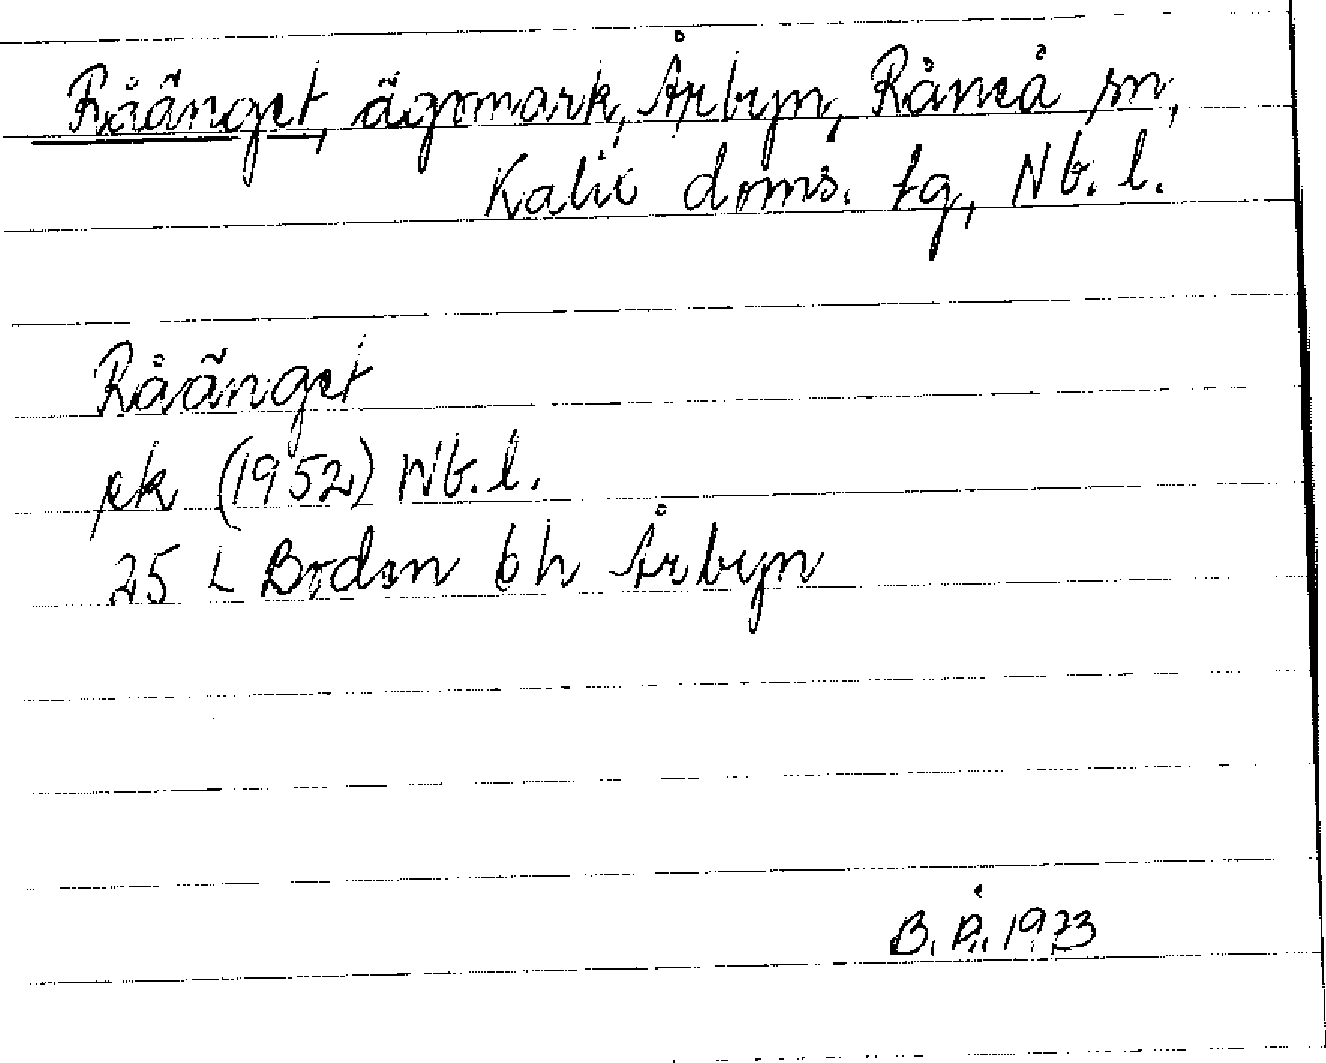 Rååänget, ägomark, Årbyn, Råneå sn,
Kalix doms. tg, Nb. l.
Råänget
ek (1952) Nb. l.
25 L Boden bh Årbyn
B. Å. 1973